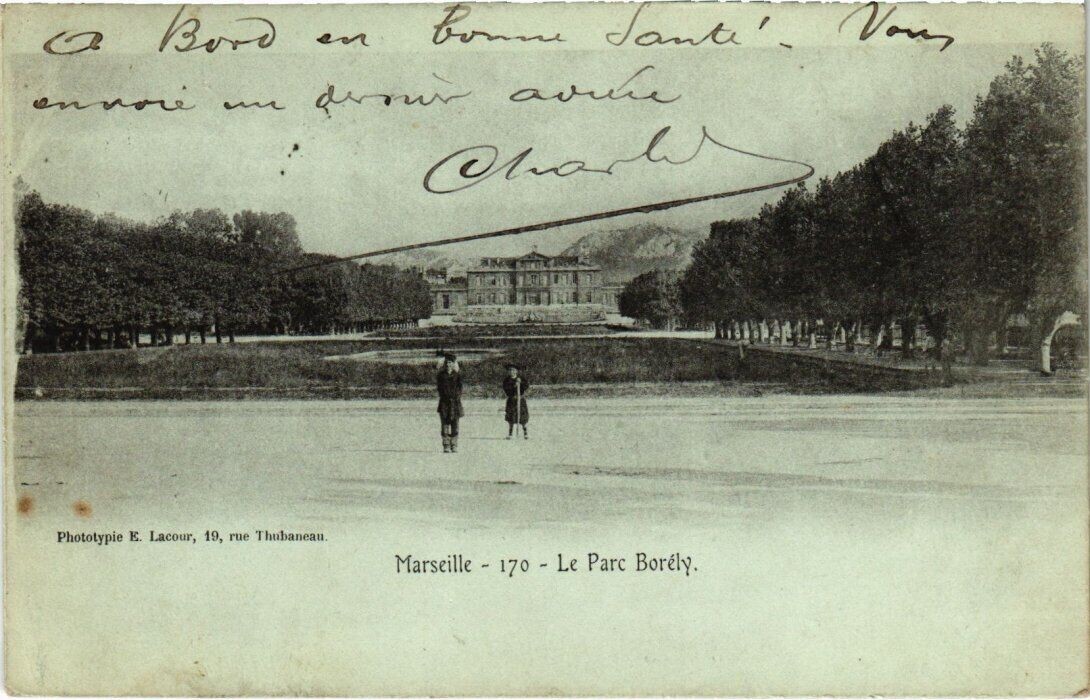 a Bord en bonne Santé - Vous
envoie un dernier adieu
Charles
Phototypie E. Lacour, 19, rue Thubaneau.
Marseille - 170 - Le Parc Borély.